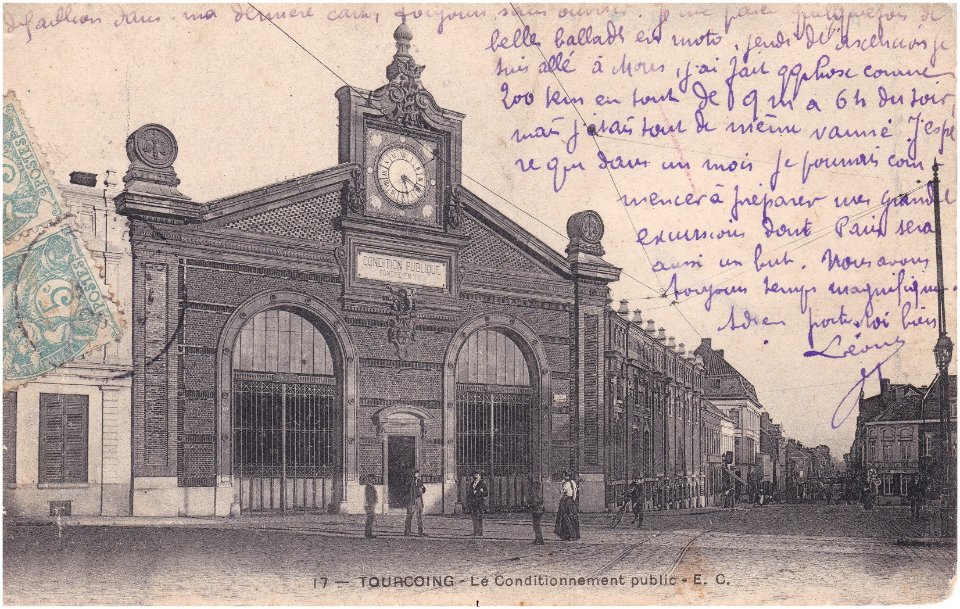 dans ma dernière carte, toujours sans ouvrir. je me paie quelquefois de
belles ballades en moto, jeudi de l'ascencion je
suis allé à Mons, j'ai fait qq phose comme
200 km en tout de 9 m à 6 h du soir,
mais j'étais tout de même vanné. J'espè
re que dans un mois je pourrais com
mencer à préparer mes grandes
excursions dont Paris sera
aussi un but. Nous avons
toujours temps magnifique.
Adieu porte-toi bien
Léon
CONDITION PUBLIQUE
POSTES
5
17 — TOURCOING - Le Conditionnement public - E. C.